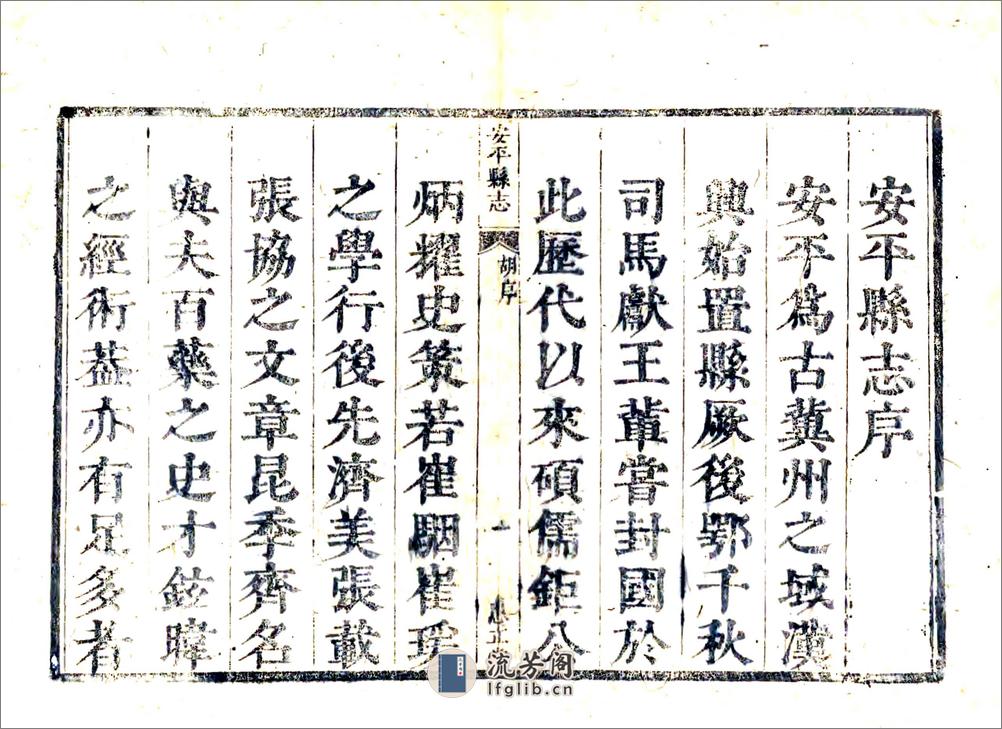 安平縣志序
安平為古冀州之域漢
興始置縣厥後鄂千秋
司馬獻王軰嘗封國於
此歷代以來碩儒鉅公
安平縣志
胡序
一
炳耀史策若崔駰崔瑗
之學行後先濟美張載
張協之文章昆季齊名
與夫百藥之史才鉉暐
之經術葢亦有足多者
流芳阁
lfglib.cn